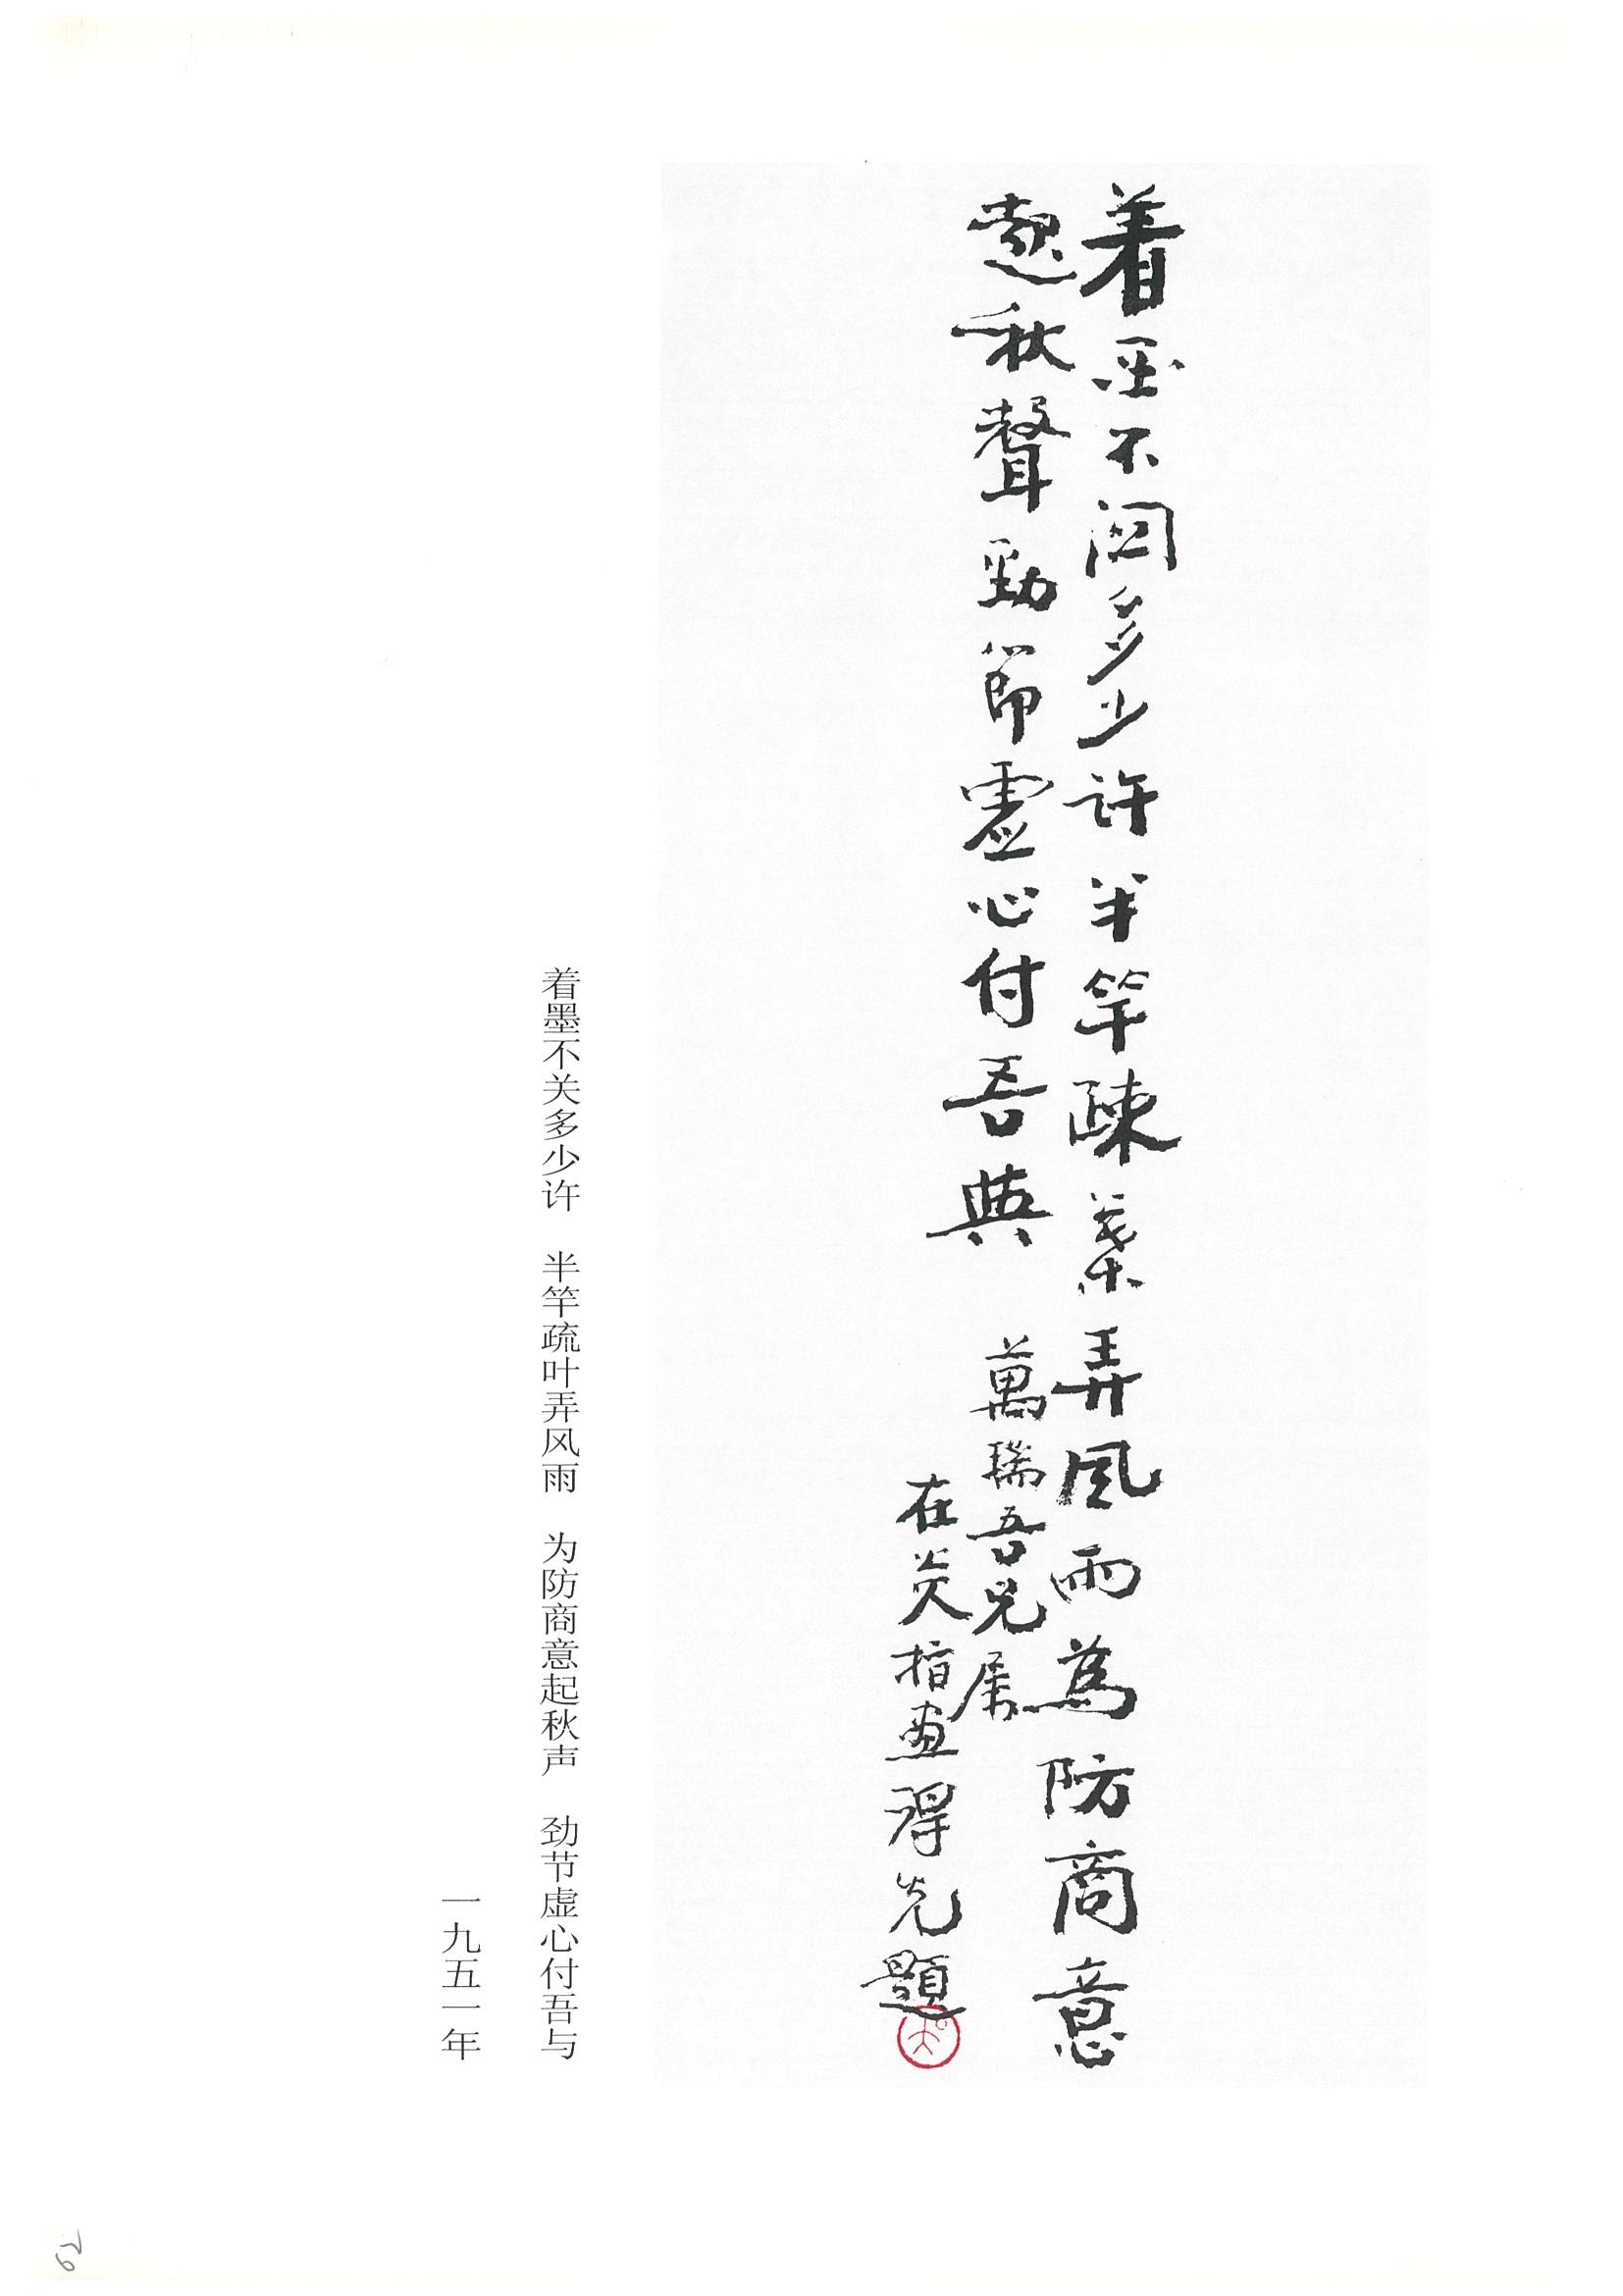 着墨不関多少許半竿疎葉弄風雨為防商意
起秋聲勁節虛心付吾與
萬瑞吾兄属
在炎指畫得光題
着墨不关多少许 半竿疏叶弄风雨 为防商意起秋声 劲节虚心付吾与
一九五一年
62